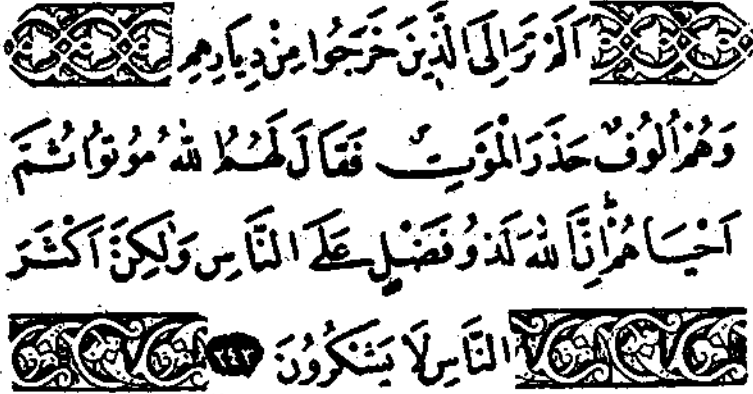 اَلَمْ تَرَ اِلَى الَّذِينَ خَرَجُوا مِنْ دِيَارِهِمْ
وَهُمْ اُلُوفٌ حَذَرَ الْمَوْتِ فَقَالَ لَهُمُ اللّٰهُ مُوتُوا ثُمَّ
اَحْيَاهُمْ اِنَّ اللّٰهَ لَذُو فَضْلٍ عَلَى النَّاسِ وَلٰكِنَّ اَكْثَرَ
النَّاسِ لَا يَشْكُرُونَ ٢٤٣